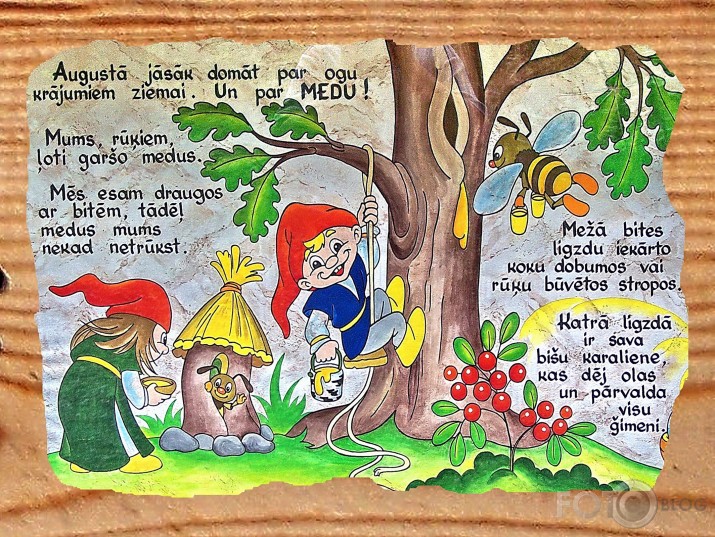 Augustā jāsāk domāt par ogu
krājumiem ziemai. Un par MEDU!
Mums, rūķiem,
ļoti garšo medus.
Mēs esam draugos
ar bitēm, tādēļ
medus mums
nekad netrūkst.
Mežā bites
ligzdu iekārto
koku dobumos vai
rūķu būvētos stropos.
Katrā ligzdā
ir sava
bišu karaliene,
kas dēj olas
un pārvalda
visu
ģimeni.
FOTOBLOG